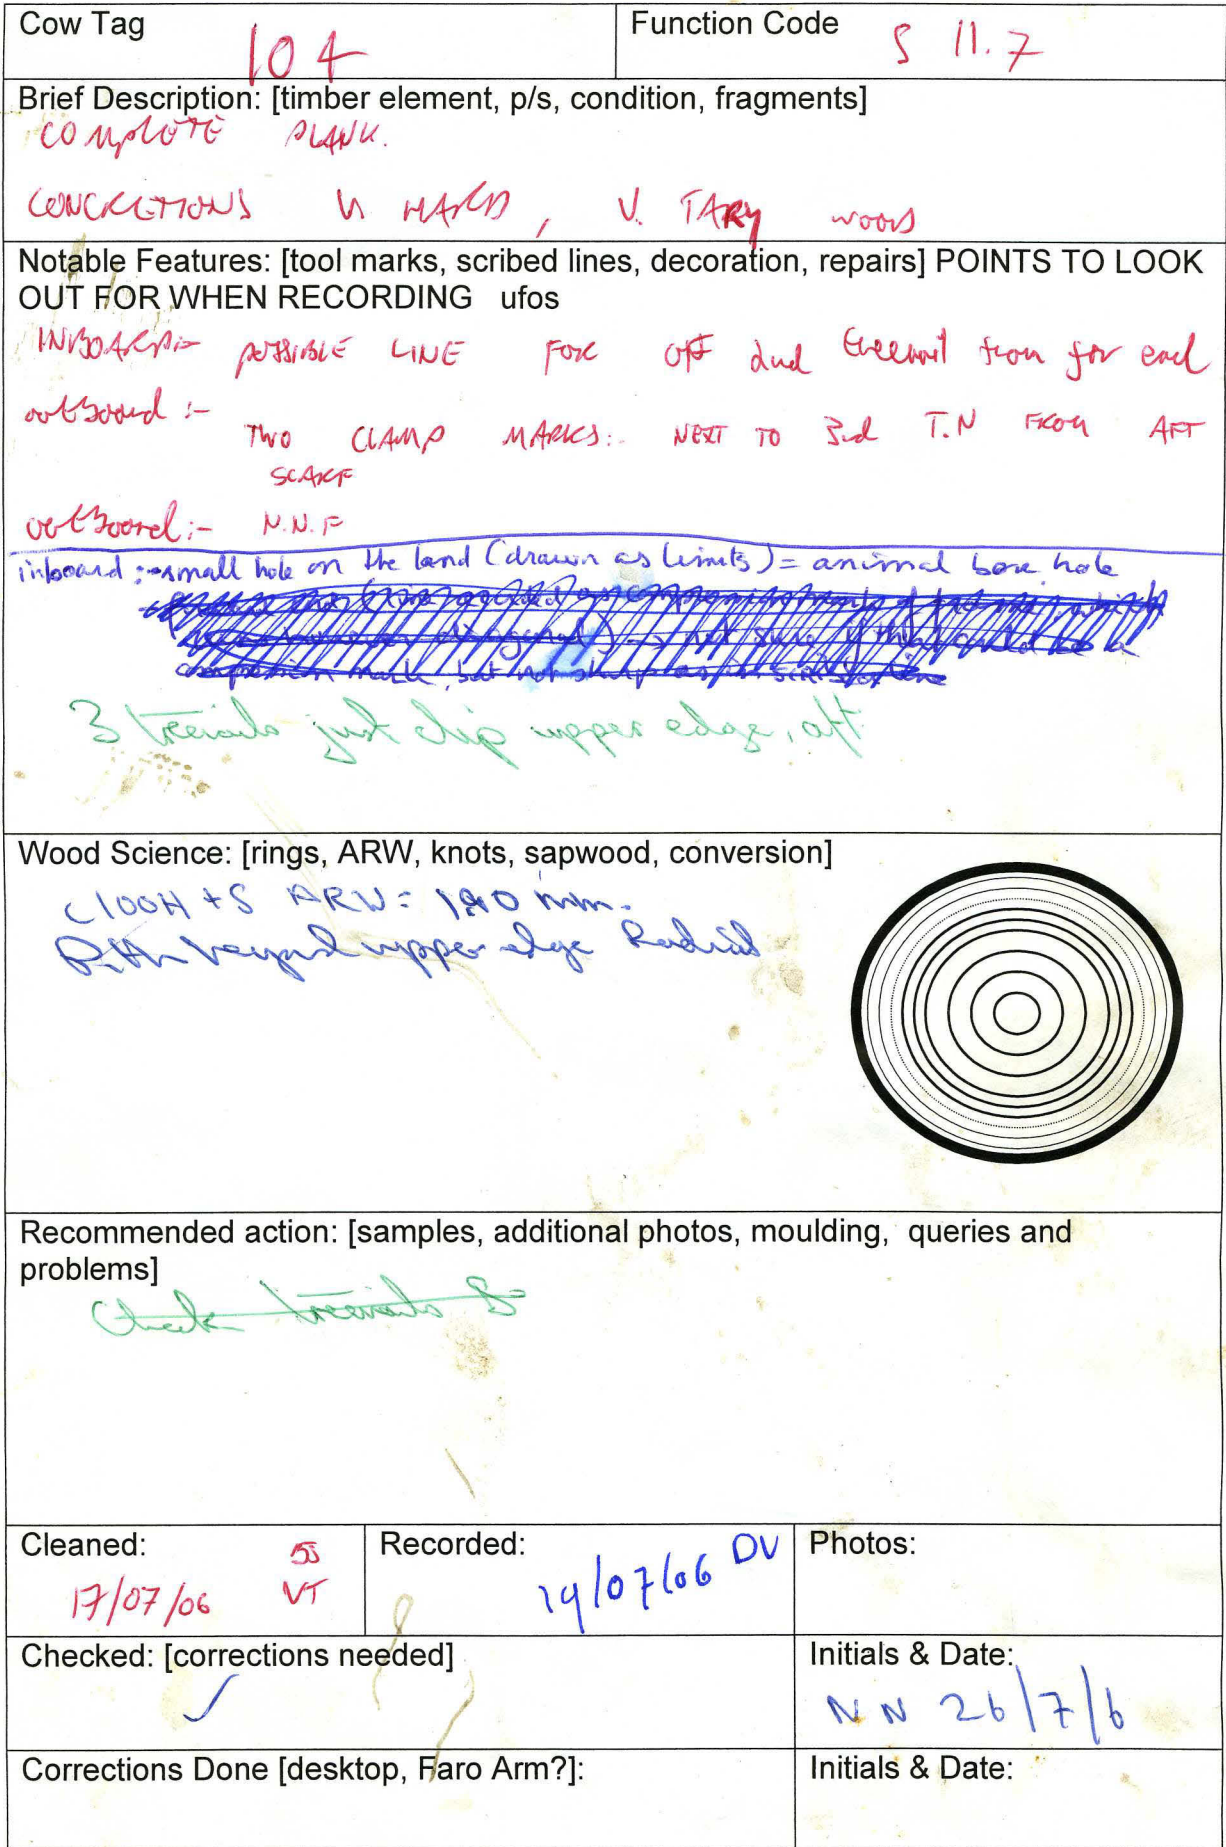 Cow Tag
104
Function Code
S 11.7
Brief Description: [timber element, p/s, condition, fragments]
COMPLETE PLANK.
CONCRETIONS V. HARD, V. TARY WOOD
Notable Features: [tool marks, scribed lines, decoration, repairs] POINTS TO LOOK
OUT FOR WHEN RECORDING ufos
INBOARD:- POSSIBLE LINE FOR OFF 2nd treenail from for end
outboard :-
TWO CLAMP MARKS:. NEXT TO 3rd T.N FROM AFT
SCARF
outboard:- N.N.F
inboard :- small hole on the land (drawn as limits) = animal bore hole
3 treenails just clip upper edge, aft
Wood Science: [rings, ARW, knots, sapwood, conversion]
C100H + S ARW = mm.
Pith beyond upper edge Radial
Recommended action: [samples, additional photos, moulding, queries and
problems]
Check treenails
Cleaned:
17/07/06
VT
Recorded:
19/07/06 DV
Photos:
Checked: [corrections needed]
✓
Initials & Date:
NN 26/7/6
Corrections Done [desktop, Faro Arm?]:
Initials & Date: